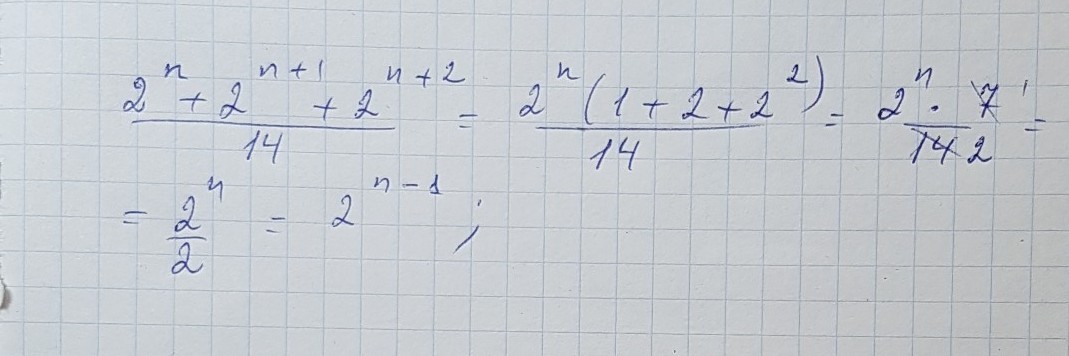 (2^n + 2^(n+1) + 2^(n+2))/14 = (2^n (1 + 2 + 2^2))/14 = (2^n · 7̸ 1)/(1̸4̸ 2) =
= 2^n/2 = 2^(n-1) ;